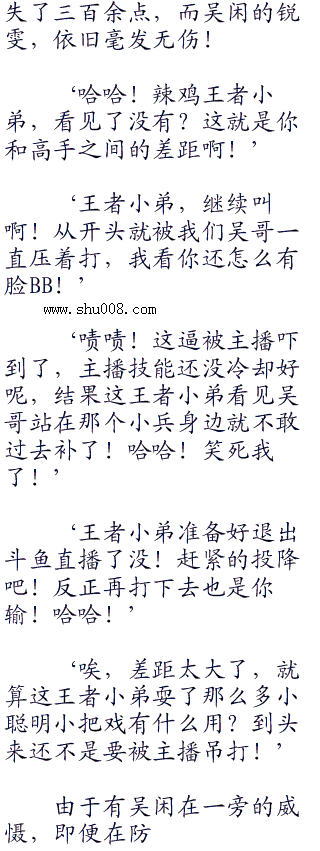 失了三百余点，而吴闲的锐
雯，依旧毫发无伤！
‘哈哈！辣鸡王者小
弟，看见了没有？这就是你
和高手之间的差距啊！’
‘王者小弟，继续叫
啊！从开头就被我们吴哥一
直压着打，我看你还怎么有
脸BB！’
www.shu008.com
‘啧啧！这逼被主播吓
到了，主播技能还没冷却好
呢，结果这王者小弟看见吴
哥站在那个小兵身边就不敢
过去补了！哈哈！笑死我
了！’
‘王者小弟准备好退出
斗鱼直播了没！赶紧的投降
吧！反正再打下去也是你
输！哈哈！’
‘唉，差距太大了，就
算这王者小弟耍了那么多小
聪明小把戏有什么用？到头
来还不是要被主播吊打！’
由于有吴闲在一旁的威
慑，即便在防